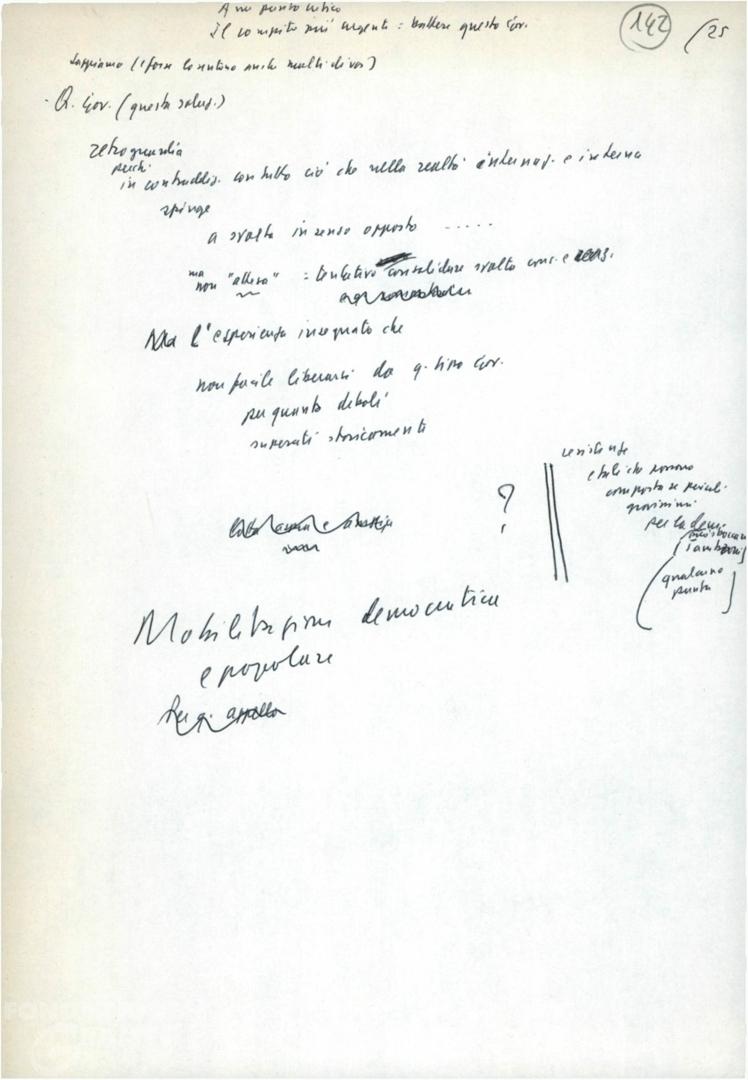 A un punto critico
Il compito più urgente: battere questo Gov.
142 /25
Sappiamo (e forse lo sentono anche molti di voi)
Q. Gov. (questa soluz.)
retroguardia
perché
in contraddiz. con tutto ciò che nella realtà internaz. e interna
spinge
a svolta in senso opposto .....
ma
non "attesa" = tentativo consolidare svolta cons. e reaz.
Ma l'esperienza insegnato che
non facile liberarsi da q. tipo Gov.
per quanto deboli
superati storicamente
?
resistenze
e tali che possono
comportare pericoli
gravissimi
per la dem.
(Tambroni)
(qualcuno
punta)
Mobilitazione democratica
e popolare
Per q. appello